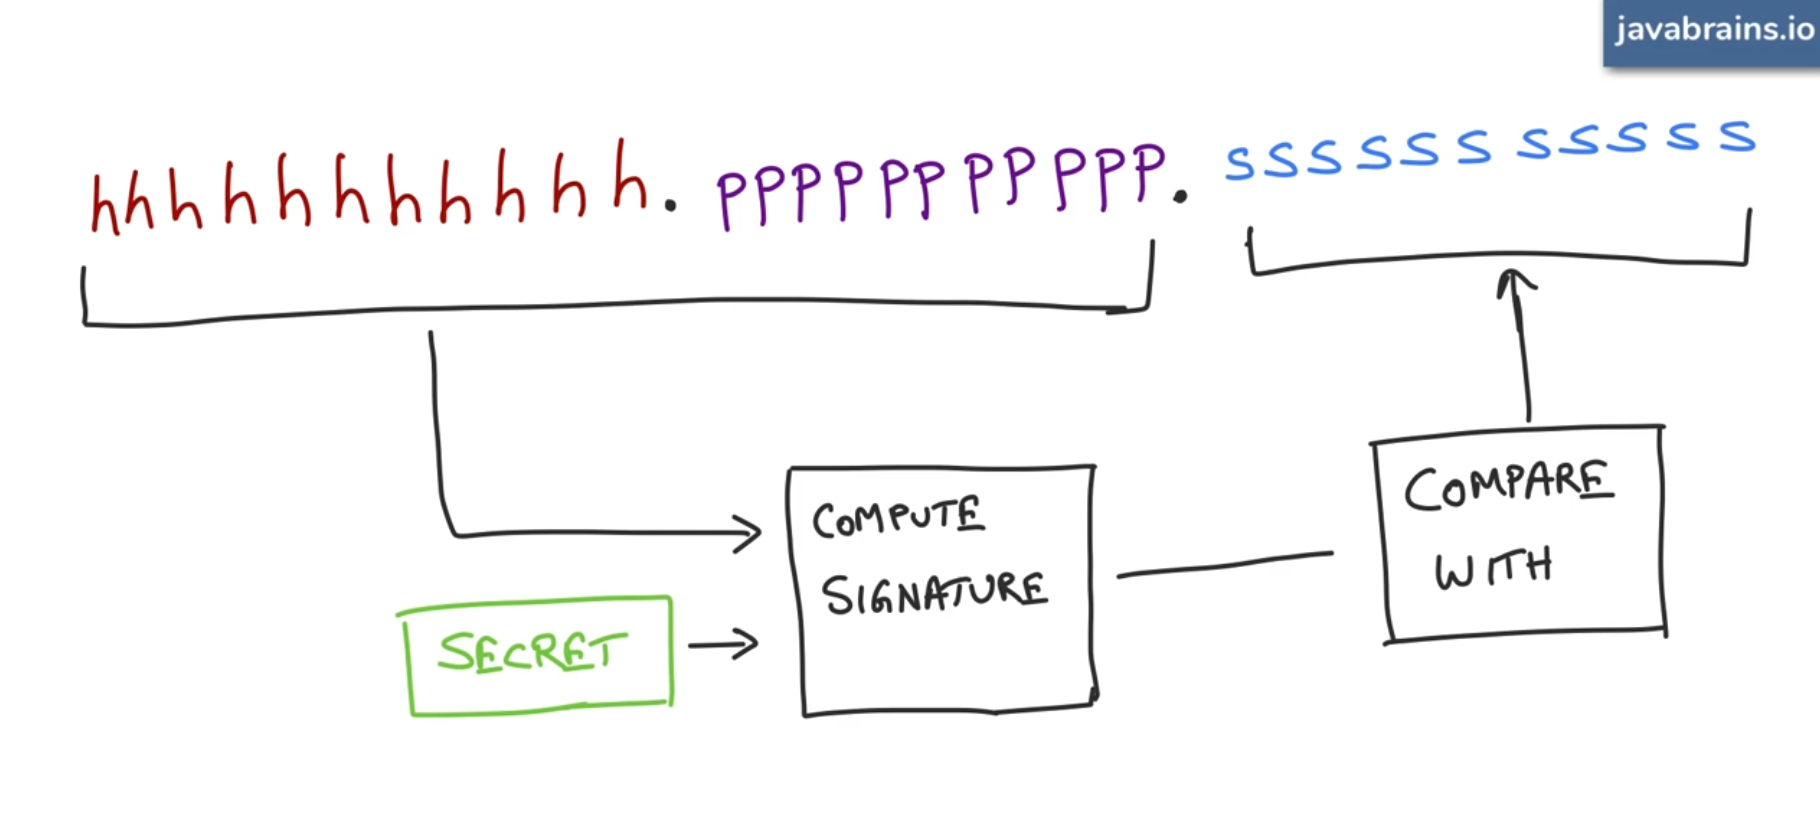 javabrains.io
hhhhhhhhhhh.pppppppppppp.sssssssssss
COMPUTE
SIGNATURE
COMPARE
WITH
SECRET